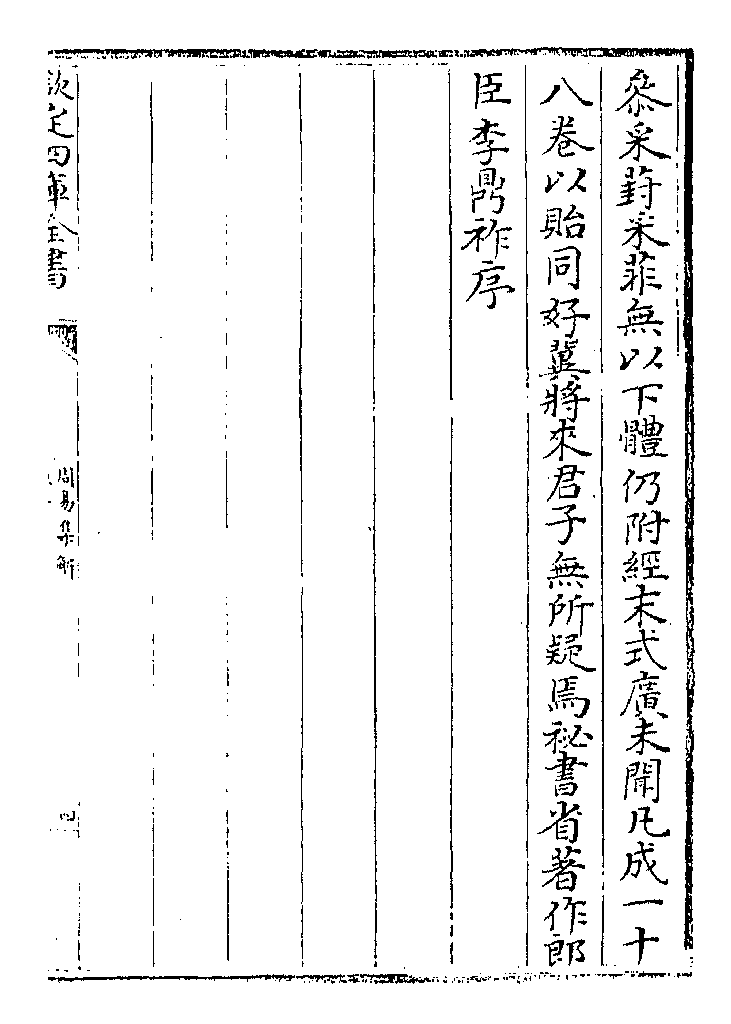 叅采葑采菲無以下體仍附經末式廣未聞凡成一十
八卷以貽同好冀將來君子無所疑焉祕書省著作郎
臣李鼎祚序
欽定四庫全書
周易集解
四